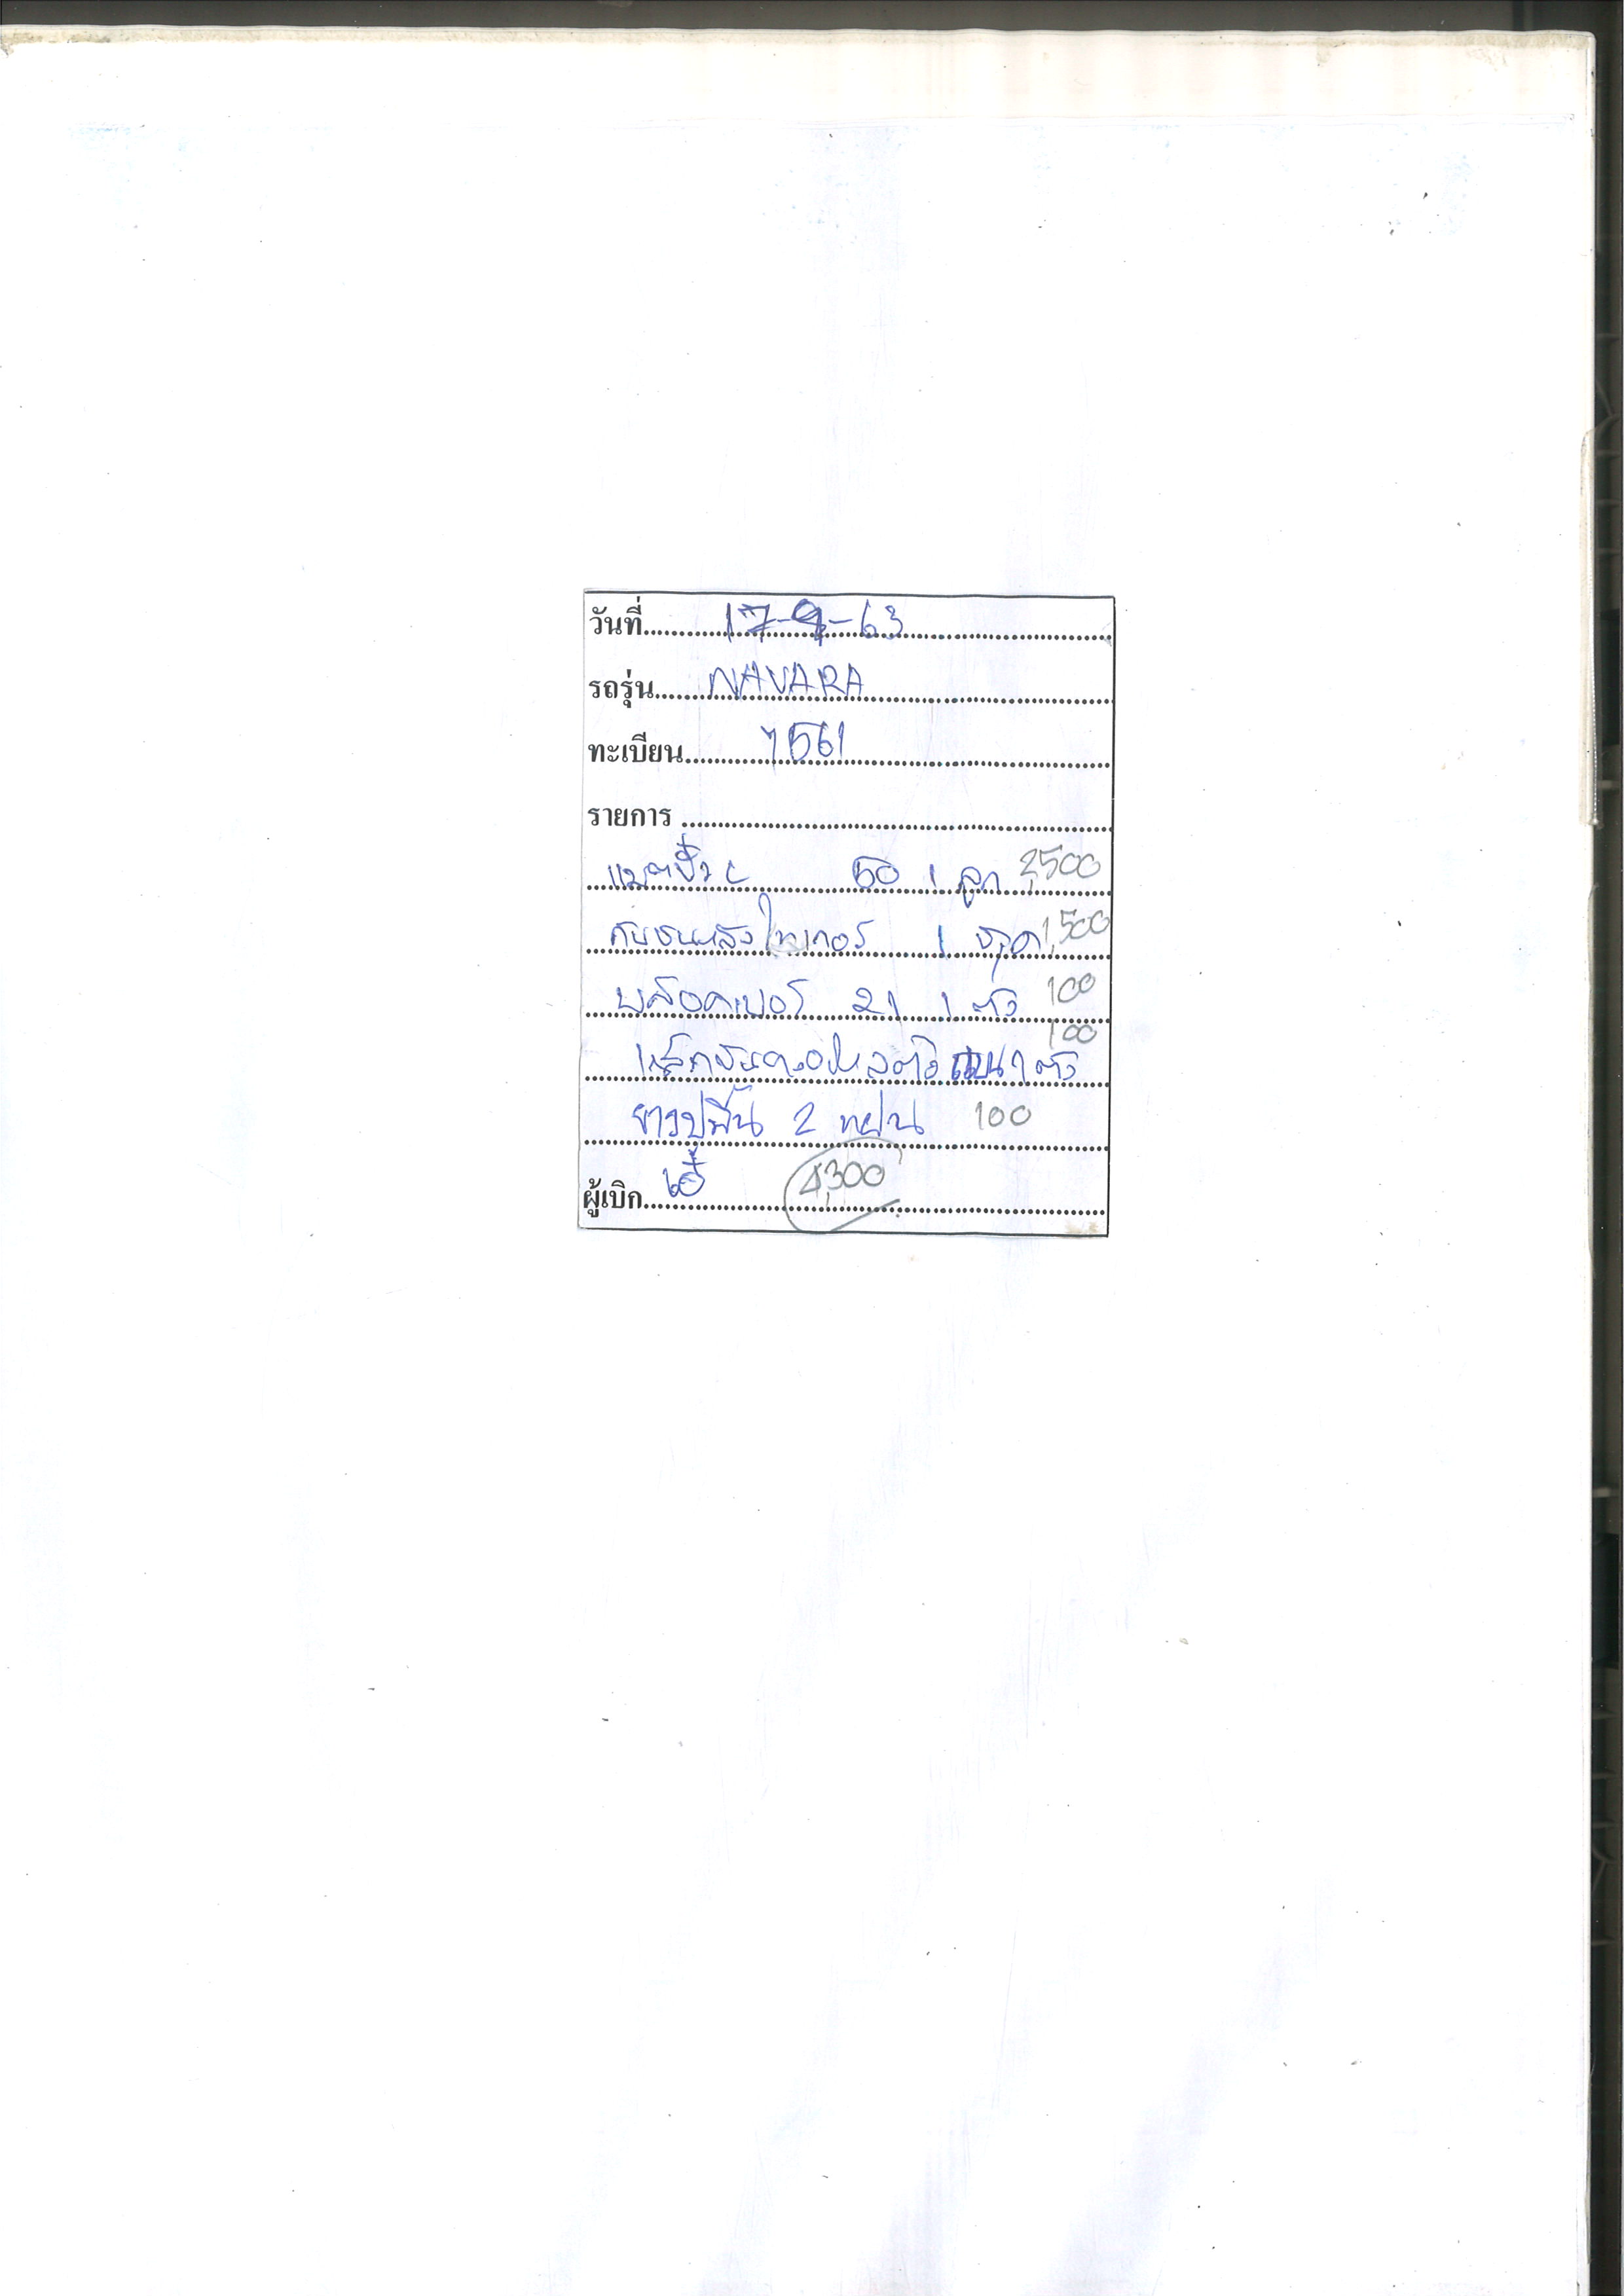 วันที่ 17-9-63
รถรุ่น NAVARA
ทะเบียน 7561
รายการ
แบตปั๊ว L 50 1 ลูก 2,500
กันชนหลังไทเกอร์ 1 ชุด 1,500
บล็อคเบอร์ 21 1 ตัว 100
100
เหล็กขัน 1 ตัว
ยางปูพื้น 2 แผ่น 100
ผู้เบิก เอ๋ 4,300